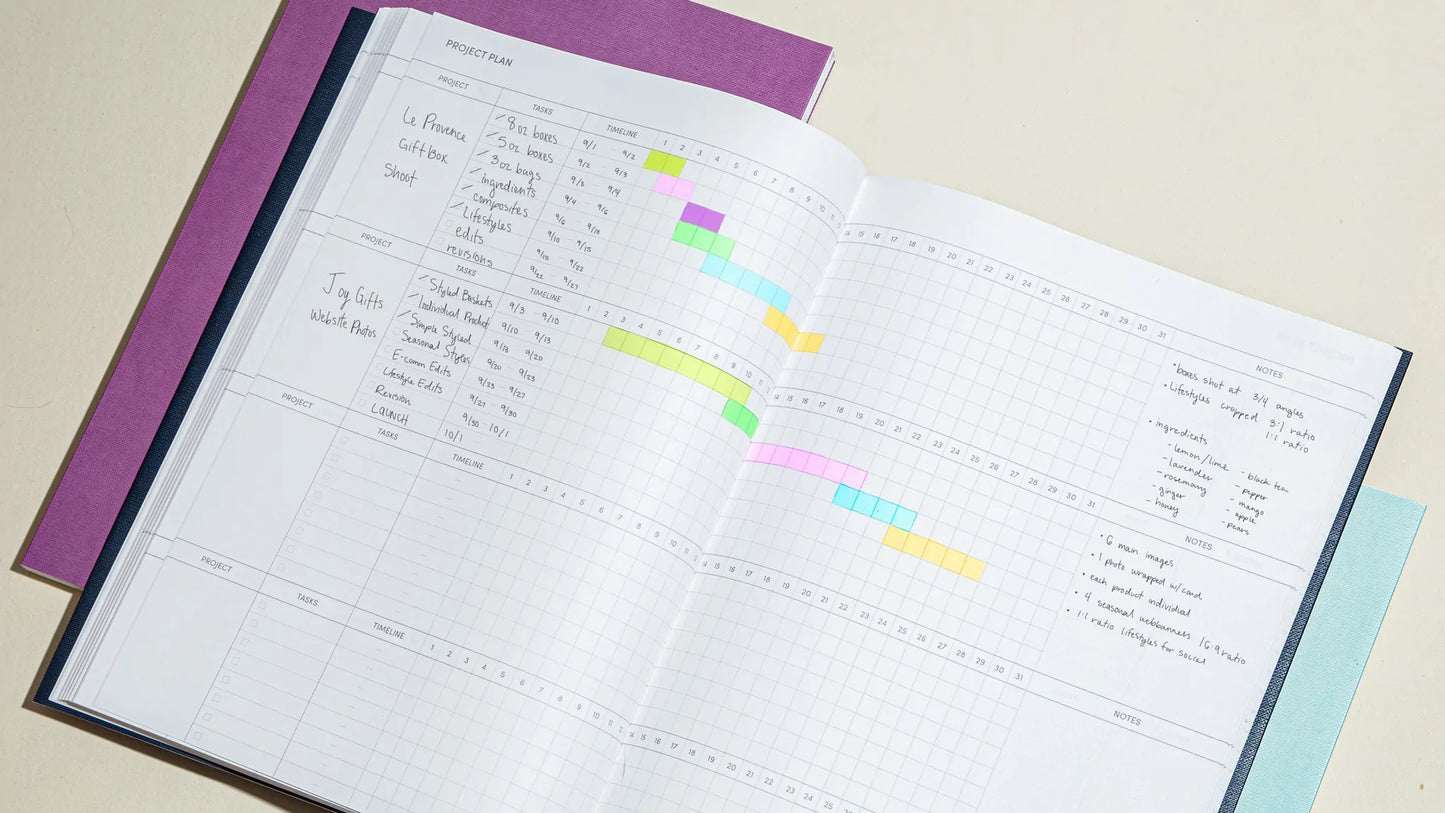 PROJECT PLAN
PROJECT
TASKS
TIMELINE
1 2 3 4 5 6 7 8 9 10 11
14 15 16 17 18 19 20 21 22 23 24 25 26 27 28 29 30 31
NOTES
Le Provence
Gift Box
Shoot
8 oz boxes 9/1 9/2
5 oz boxes 9/2 9/3
3 oz bags 9/3 9/4
ingredients 9/4 9/6
composites 9/6 9/10
Lifestyles 9/10 9/15
edits 9/15 9/22
revisions 9/22 9/27
• boxes shot at 3/4 angles
• Lifestyles cropped 3:1 ratio
1:1 ratio
• ingredients
- lemon/lime - black tea
- lavender - pepper
- rosemary - mango
- ginger - apple
- honey - pears
PROJECT
TASKS
TIMELINE
1 2 3 4 5 6 7 8 9 10 11
14 15 16 17 18 19 20 21 22 23 24 25 26 27 28 29 30 31
NOTES
Joy Gifts
Website Photos
Styled Baskets 9/3 - 9/10
Individual Product 9/10 - 9/13
Simple Styled 9/13 - 9/20
Seasonal Styles 9/20 - 9/23
E-comm Edits 9/23 - 9/27
Lifestyle Edits 9/27 9/30
Revision 9/30 10/1
LAUNCH 10/1
• 6 main images
• 1 photo wrapped w/card
• each product individual
• 4 seasonal webbanners 16:9 ratio
• 1:1 ratio lifestyles for social
PROJECT
TASKS
TIMELINE
1 2 3 4 5 6 7 8 9 10 11
14 15 16 17 18 19 20 21 22 23 24 25 26 27 28 29 30 31
NOTES
PROJECT
TASKS
TIMELINE
1 2 3 4 5 6 7 8 9 10 11
14 15 16 17 18 19 20 21 22 23 24 25